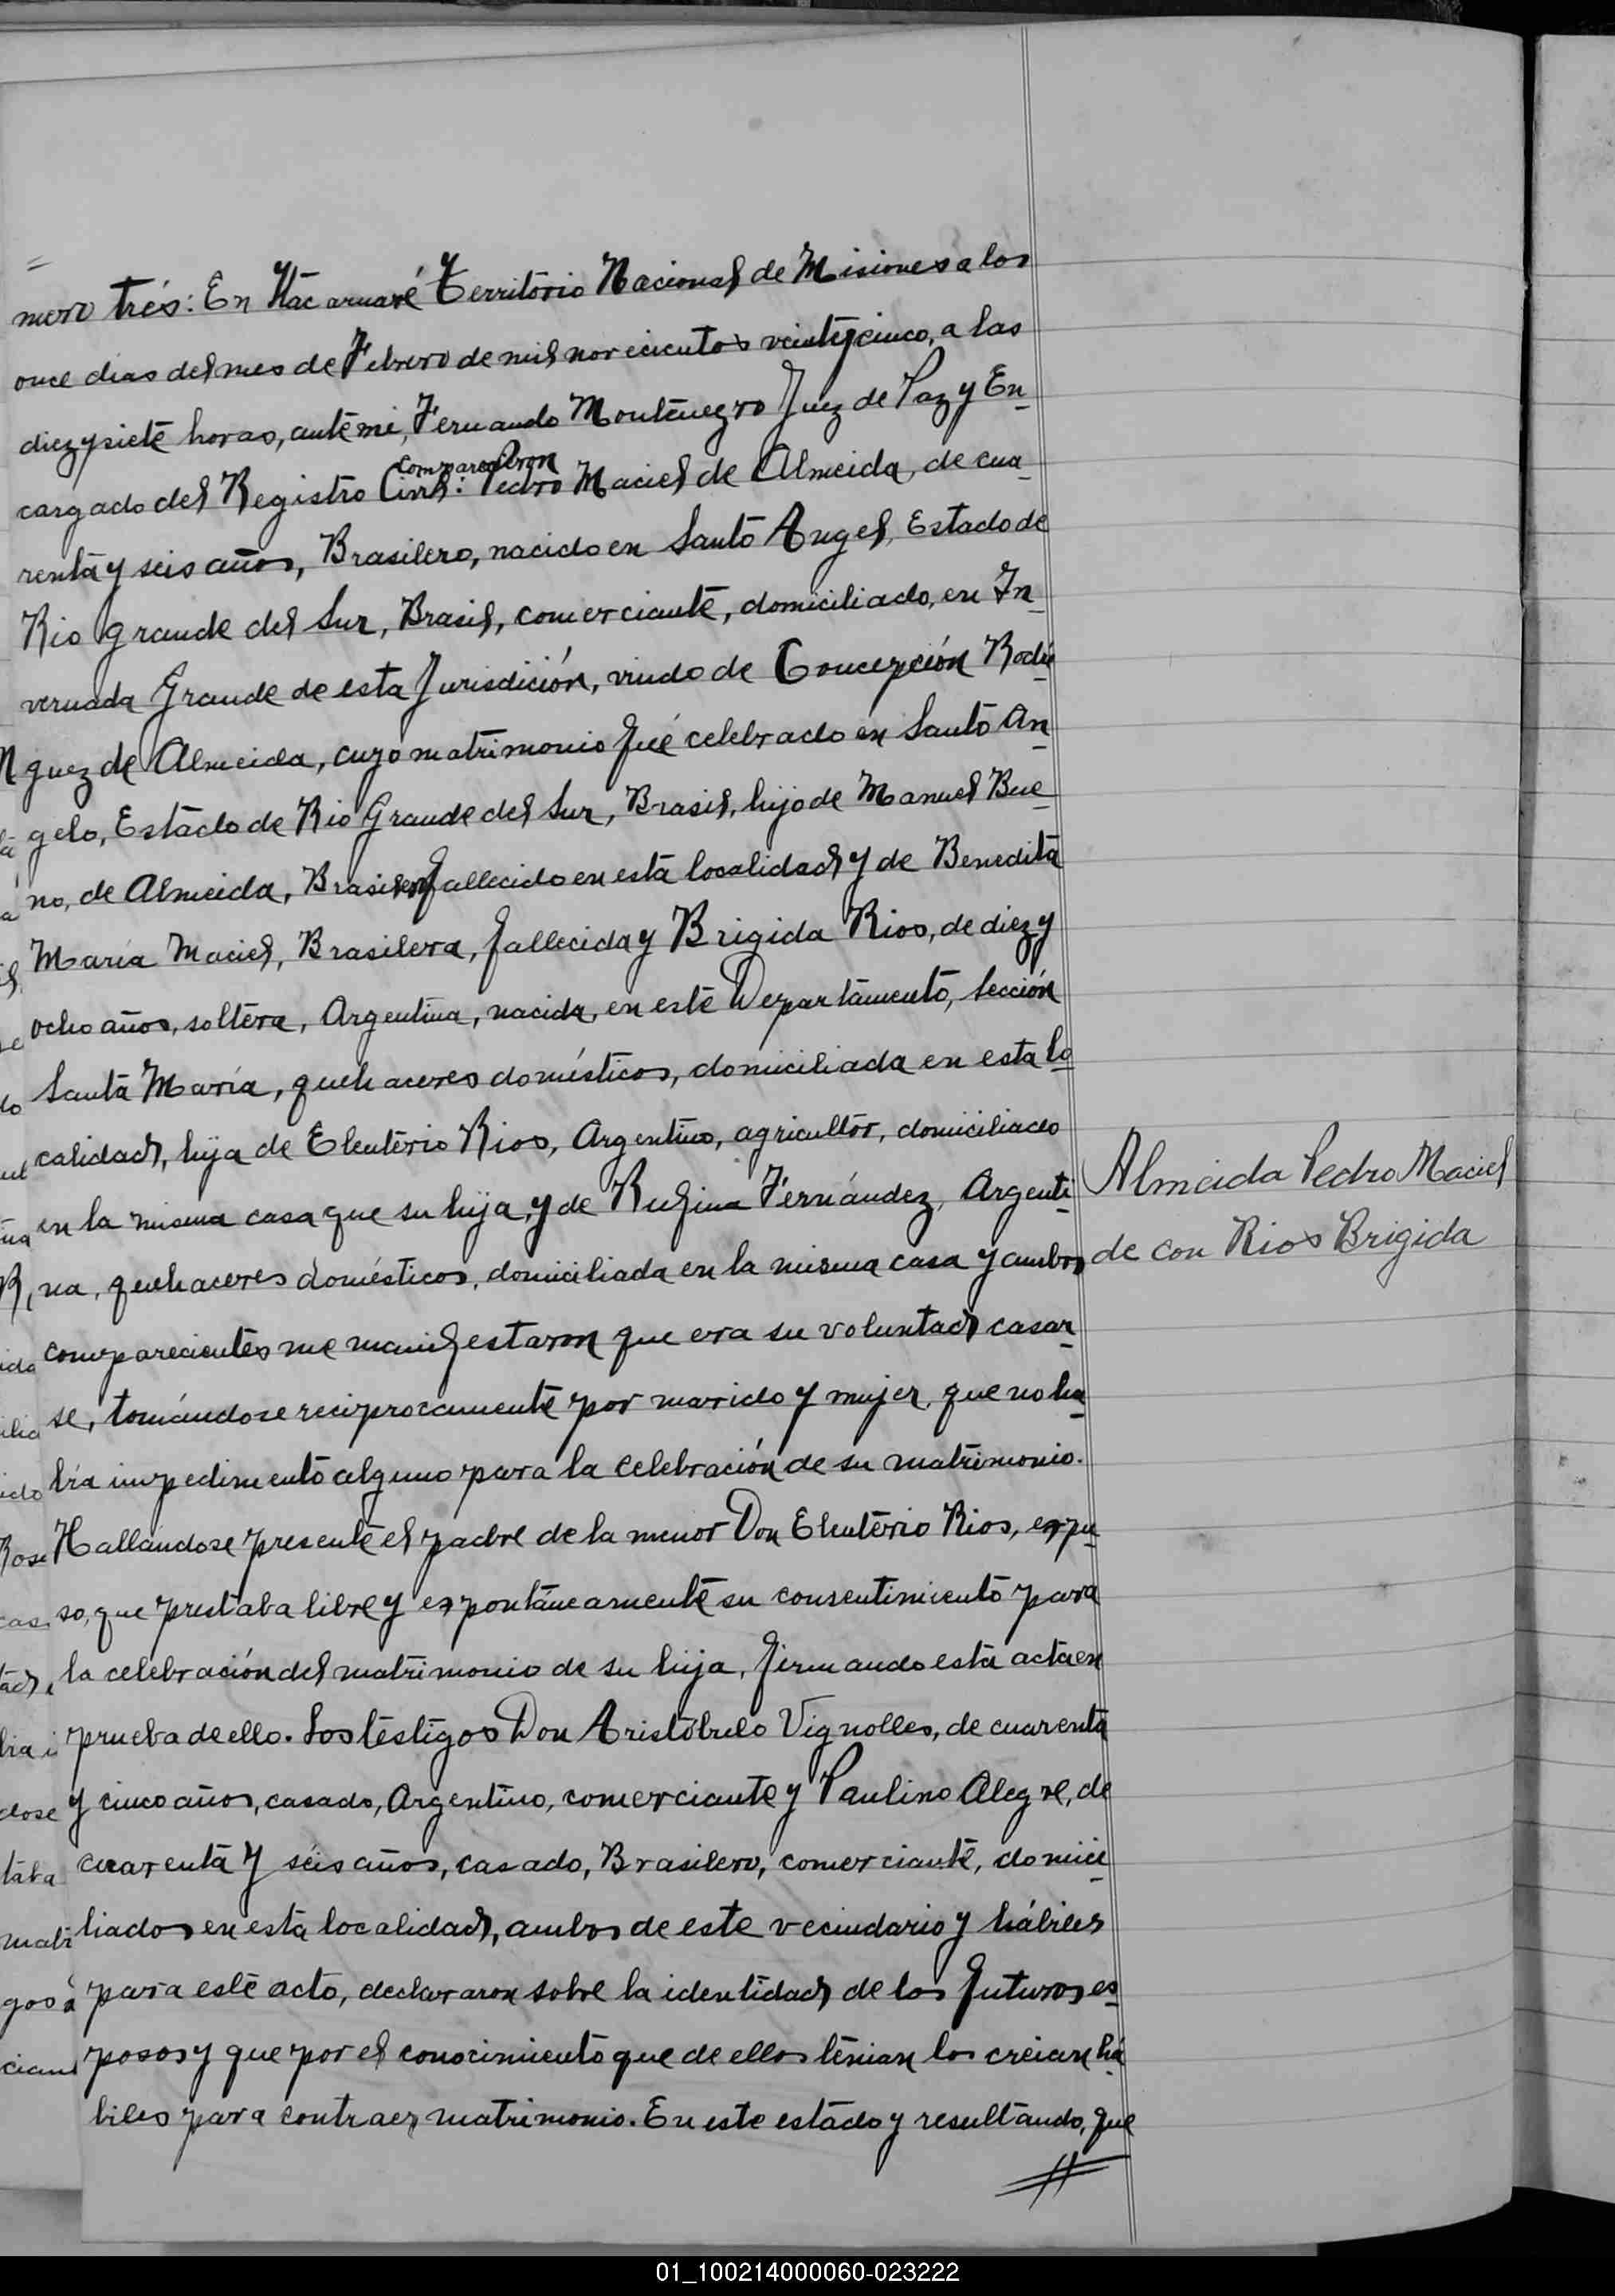 =
mero trés: En Itacaruaré Territorio Nacional de Misiones a los
once dias del mes de Febrero de mil novecientos veinteycinco, a las
diezysiete horas, ante mi, Fernando Montenegro Juez de Paz y En
comparecieron
cargado del Registro Civil: Pedro Maciel de Almeida, de cua
renta y seis años, Brasilero, nacido en Santo Angel, Estado de
Rio Grande del Sur, Brasil, comerciante, domiciliado, en In
vernada Grande de esta Jurisdición, viudo de Concepción Rodri
guez de Almeida, cuyo matrimonio fué celebrado en Santo An
gelo, Estado de Rio Grande del Sur, Brasil, hijo de Manuel Bue
no, de Almeida, Brasilero, fallecido en esta localidad y de Benedita
María Maciel, Brasilera, fallecida y Brigida Rios, de diez y
ocho años, soltera, Argentina, nacida, en este Departamento, Sección
Santa María, quehaceres domésticos, domiciliada en esta lo
calidad, hija de Eleuterio Rios, Argentino, agricultor, domiciliado
en la misma casa que su hija, y de Rufina Fernández, Argenti
na, quehaceres domésticos, domiciliada en la misma casa y ambos
comparecientes me manifestaron que era su voluntad casar
se, tomándose reciprocamente por marido y mujer, que no ha
bia impedimento alguno para la celebración de su matrimonio.
Hallandose presente el padre de la menor Don Eleuterio Rios, expu
so, que prestaba libre y expontáneamente su consentimiento para
la celebración del matrimonio de su hija, firmando esta acta en
prueba de ello. Los testigos Don Aristóbulo Vignolles, de cuarenta
y cinco años, casado, Argentino, comerciante y Paulino Alegre, de
cuarenta y seis años, casado, Brasilero, comerciante, domici
liados en esta localidad, ambos de este vecindario y hábiles
para este acto, declararon sobre la identidad de los futuros es
posos y que por el conocimiento que de ellos tenian los creian há
biles para contraer matrimonio. En este estado y resultando, que
Almeida Pedro Maciel
de con Rios Brigida
01_100214000060-023222